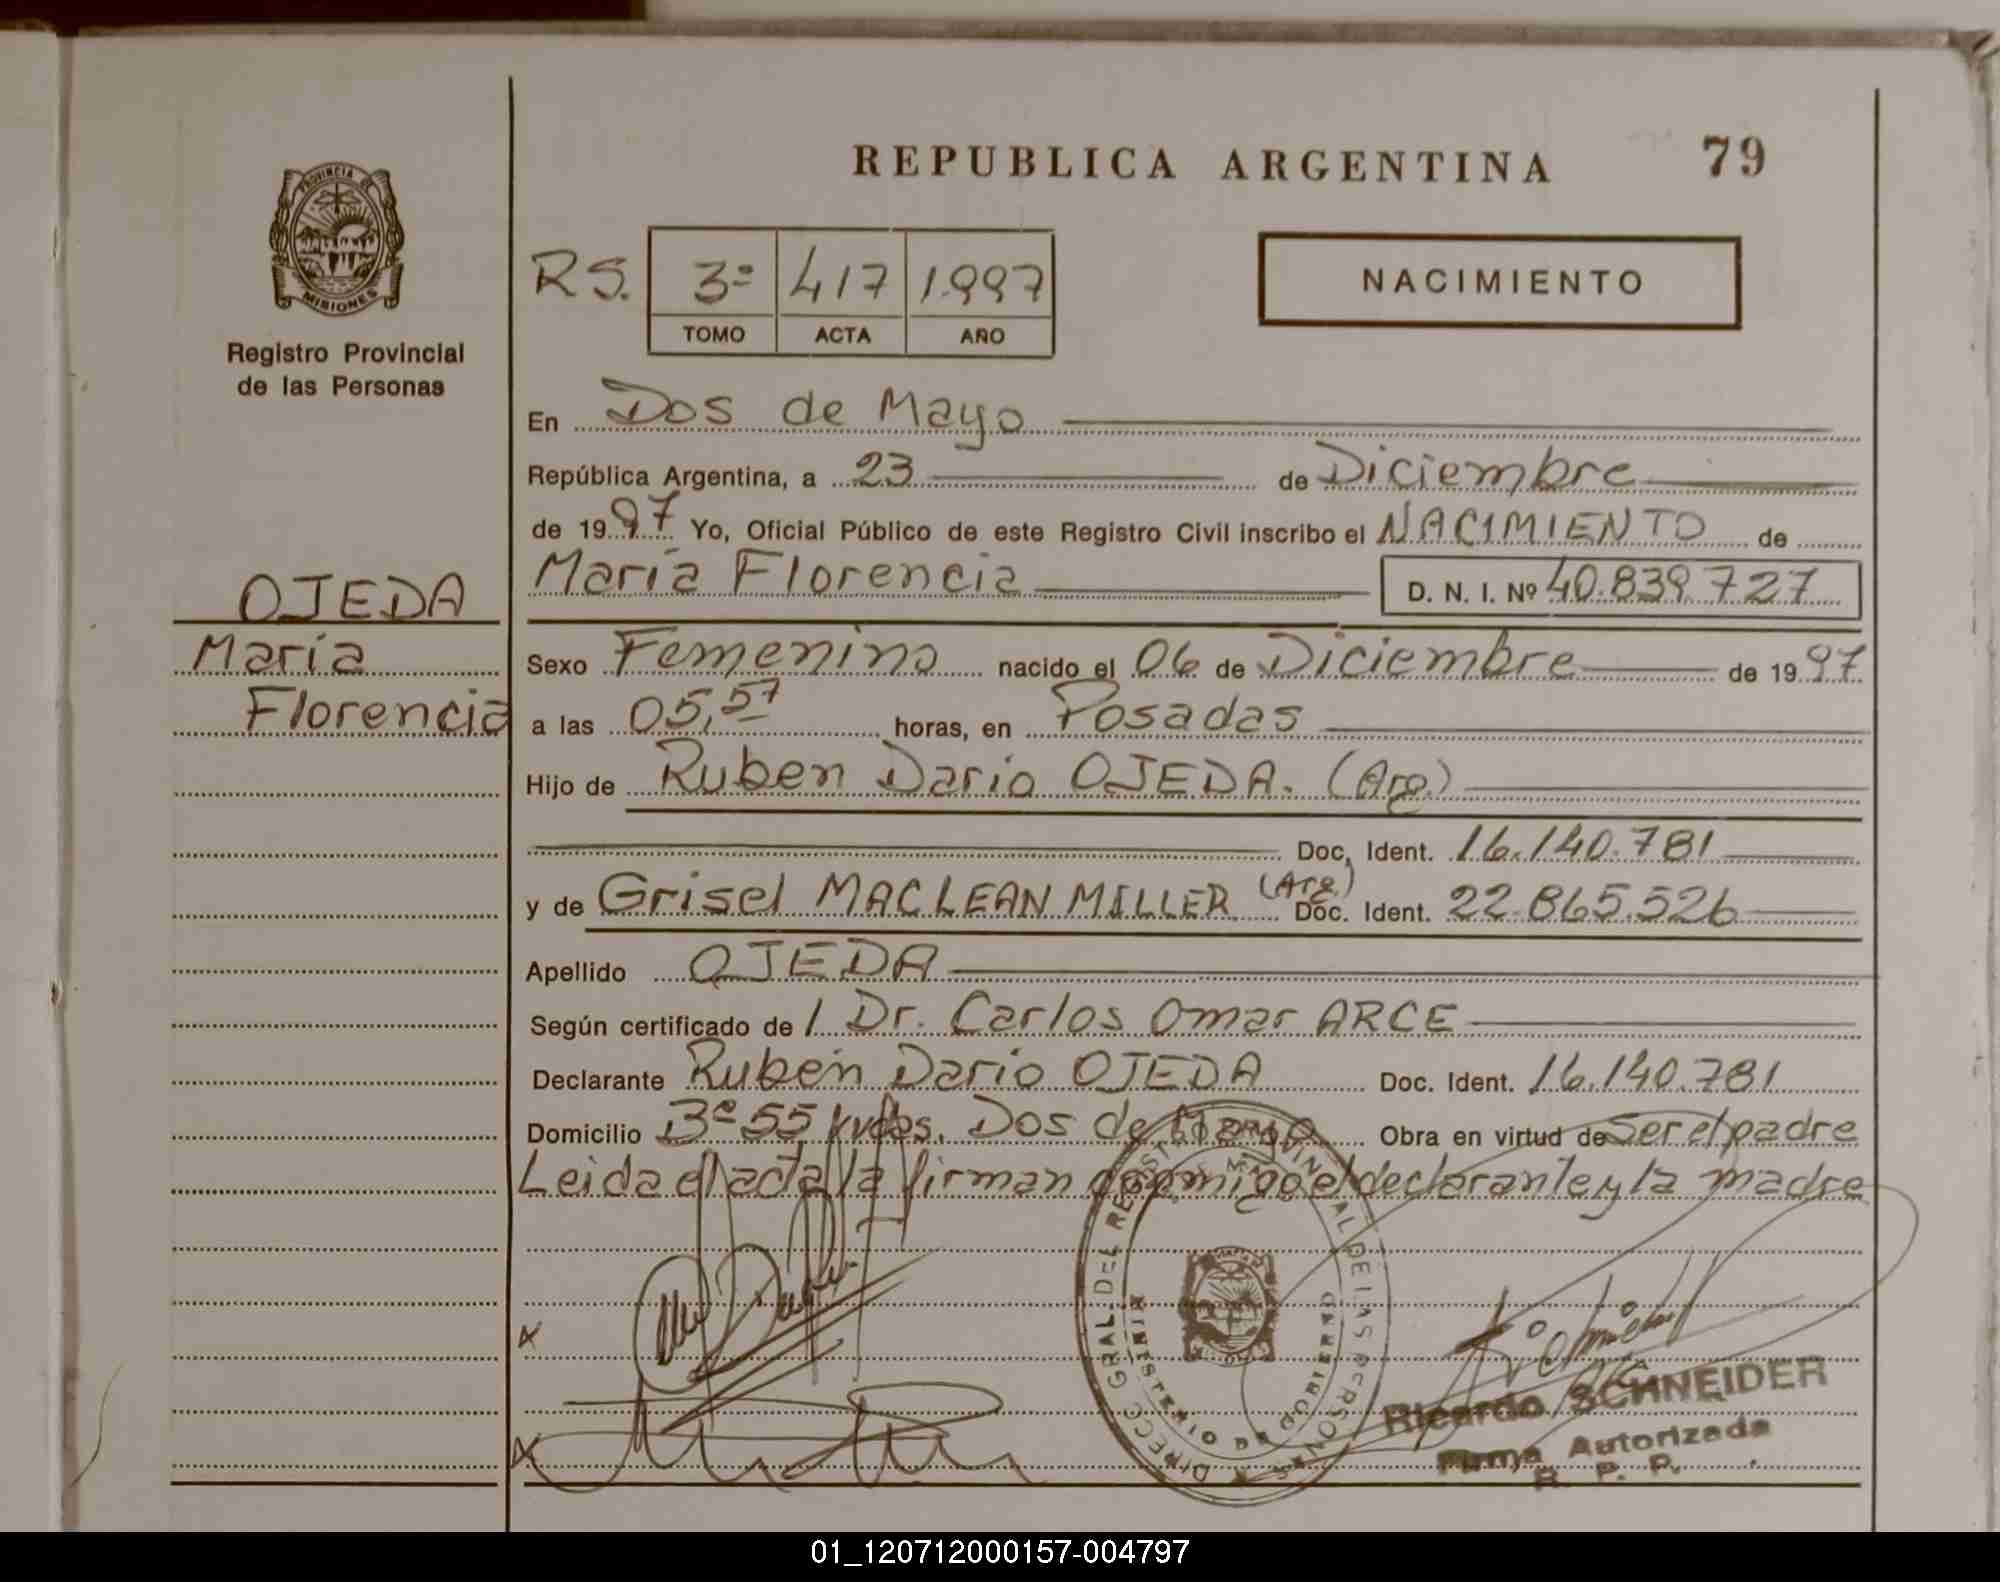 REPUBLICA ARGENTINA 79
PROVINCIA DE
MISIONES
Registro Provincial
de las Personas
RS. 3º 417 1.997
TOMO ACTA AÑO
NACIMIENTO
OJEDA
María
Florencia
En Dos de Mayo
República Argentina, a 23 de Diciembre
de 1997 Yo, Oficial Público de este Registro Civil inscribo el NACIMIENTO de
María Florencia D. N. I. Nº 40.839.727
Sexo Femenino nacido el 06 de Diciembre de 1997
a las 05,57 horas, en Posadas
Hijo de Ruben Dario OJEDA. (Arg.)
Doc. Ident. 16.140.781
y de Grisel MACLEAN MILLER (Arg.) Doc. Ident. 22.865.526
Apellido OJEDA
Según certificado de / Dr. Carlos Omar ARCE
Declarante Ruben Dario OJEDA Doc. Ident. 16.140.781
Domicilio Bº 55 Dos de Mayo Obra en virtud de Ser el padre
Leida el acta la firman conmigo el declarante y la madre
DIRECC GRAL DEL REGISTRO PROVINCIAL DE LAS PERSONAS
MINISTERIO DE GOBIERNO
Ricardo SCHNEIDER
Firma Autorizada
R. P. P.
01_120712000157-004797